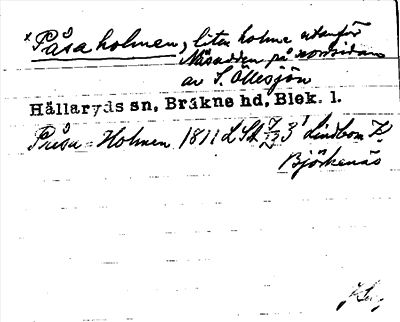 x Påsa holmen, liten holme utanför
Näsudden på norrsidan
av S. Öllesjön
Hällaryds sn, Bräkne hd, Blek. l.
Påsa-Holmen 1811 LSA 3 Lindbom
Björkenäs